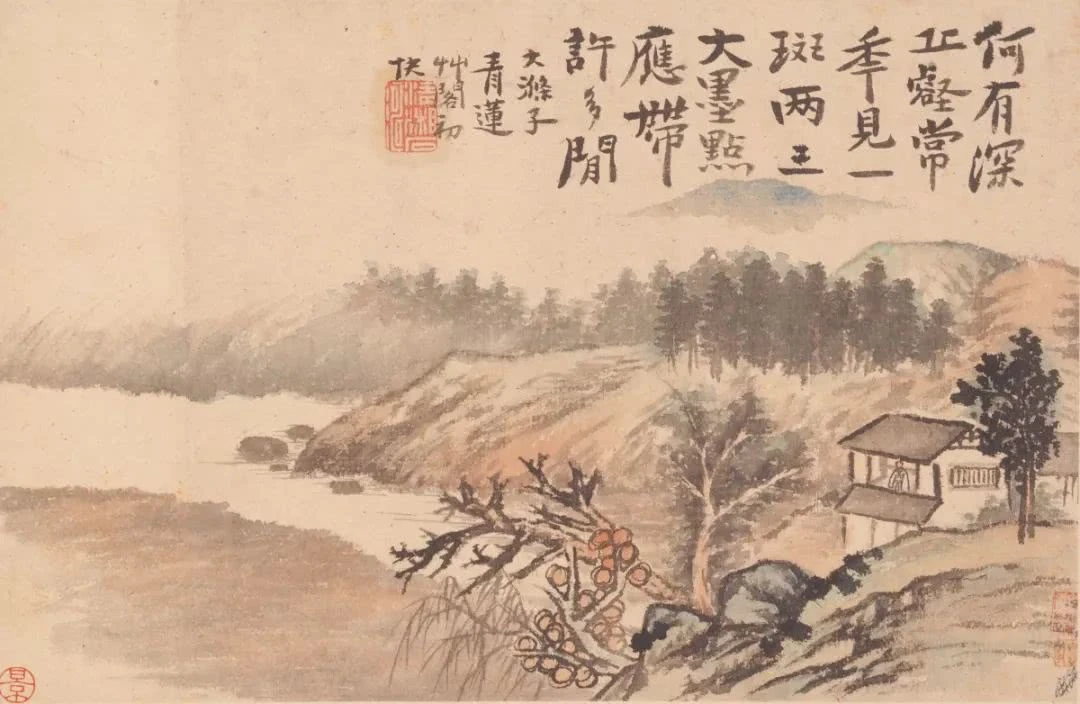 何有深
丘壑常
秊見一
斑两三
大墨點
應帶
許多閒
大滌子
青蓮
艸閣初
快